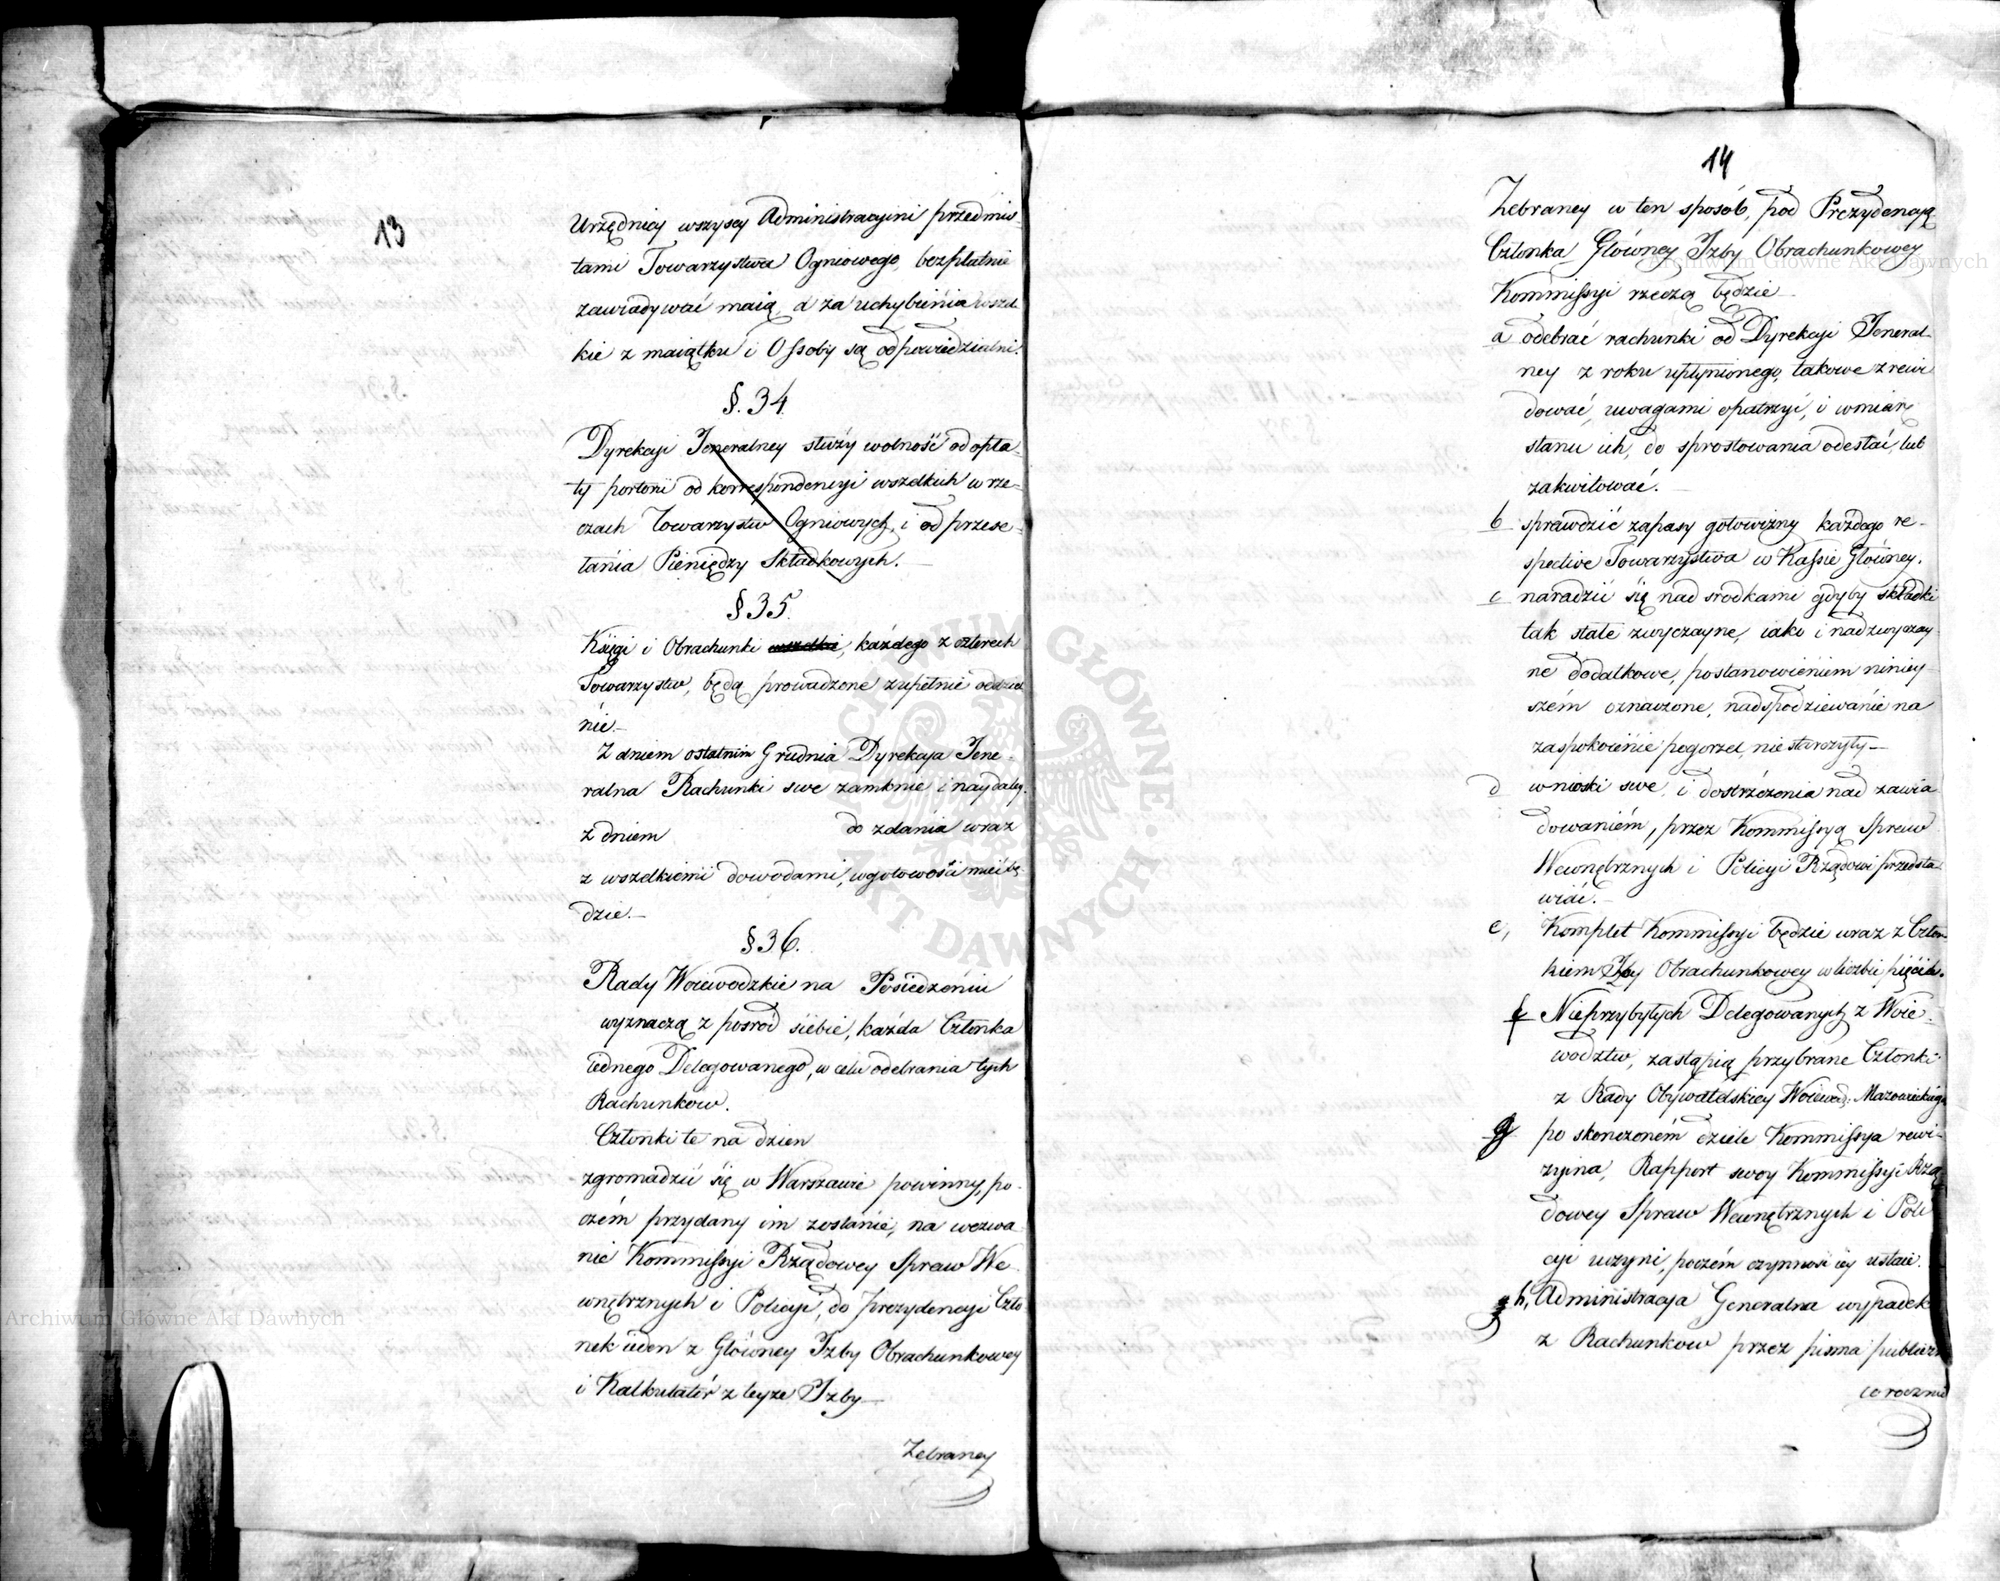 13
Urzędnicy wszyscy Administracyini przedmio-
tami Towarzystwa Ogniowego, bezpłatnie
zawiadywać maią, a za uchybienia wszel-
kie z maiątku i Ossoby są odpowiedzialni.
§. 34.
Dyrekcyi Jeneralney służy wolność od opła-
ty portorii od korrespondencyi wszelkich w rze-
czach Towarzystw Ogniowych, i od przese-
łania Pieniędzy Składkowych.
§ 35.
Księgi i Obrachunki wszelkie, każdego z czterech
Towarzystw, będą prowadzone zupełnie oddziel
nie.
Z dniem ostatnim Grudnia Dyrekcya Jene-
ralna Rachunki swe zamknie i naydaley
z dniem do zdania wraz
z wszelkiemi dowodami, w gotowości mieć bę-
dzie.
§ 36.
Rady Woiewodzkie na Posiedzeniu
wyznaczą z pośrod siebie, każda Członka
iednego Delegowanego, w celu odebrania tych
Rachunkow.
Członki te na dzien
zgromadzić się w Warszawie powinny, po-
czém przydany im zostanie, na wezwa
nie Kommissyi Rządowey Spraw We-
wnętrznych i Policyi, do prezydencyi Czło-
nek ieden z Główney Izby Obrachunkowey
i Kalkulatór z teyże Izby
Zebraney
14
Zebraney w ten sposób, pod Prezydencyą
Członka Główney Izby Obrachunkowey
Kommissyi rzeczą będzie
a odebrać rachunki od Dyrekcyi Jeneral-
ney z roku upłynionego, takowe zrewi
dować, uwagami opatrzyć, i w miarę
stanu ich, do sprostowania odesłać, lub
zakwitować.
b sprawdzić zapasy gotowizny każdego re-
spective Towarzystwa w Kassie Główney.
c naradzić się nad srodkami gdyby składki
tak stałe zwyczayne, iako i nadzwyczay-
ne dodatkowe, postanowieniem niniey-
szém oznaczone, nadspodziewanie na
zaspokoienie pogorzel, nie starczyły
d wnioski swe, i dostrzeżenia nad zawia-
dowaniém, przez Kommissyą Spraw
Wewnętrznych i Policyi Rządowi przedsta-
wiać.
e, Komplet Kommissyi będzie wraz z Człon-
kiem Izby Obrachunkowey w liczbie pięciu.
f Nieprzybyłych Delegowanych z Woie-
wodztw, zastąpią przybrane Członki
z Rady Obywatelskiey Woiewod: Mazowieckiego
g po skonczoném dziele Kommissya rewi-
zyina, Rapport swoy Kommissyi Rzą-
dowey Spraw Wewnętrznych i Poli
cyi uczyni, poczém czynność iey ustaie.
h, Administracya Generalna wypadek
z Rachunkow przez pisma publiczn
corocznie
ARCHIWUM GŁÓWNE AKT DAWNYCH
Archiwum Główne Akt Dawnych
Archiwum Główne Akt Dawnych